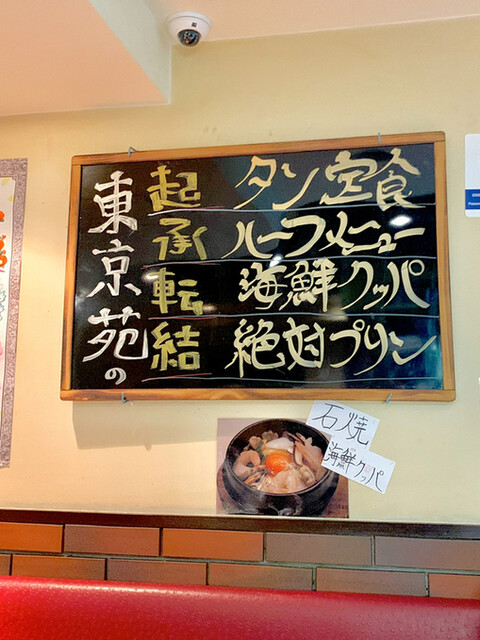 東京苑の
起 タン定食
承 ハーフメニュー
転 海鮮クッパ
結 絶対プリン
石焼
海鮮クッパ